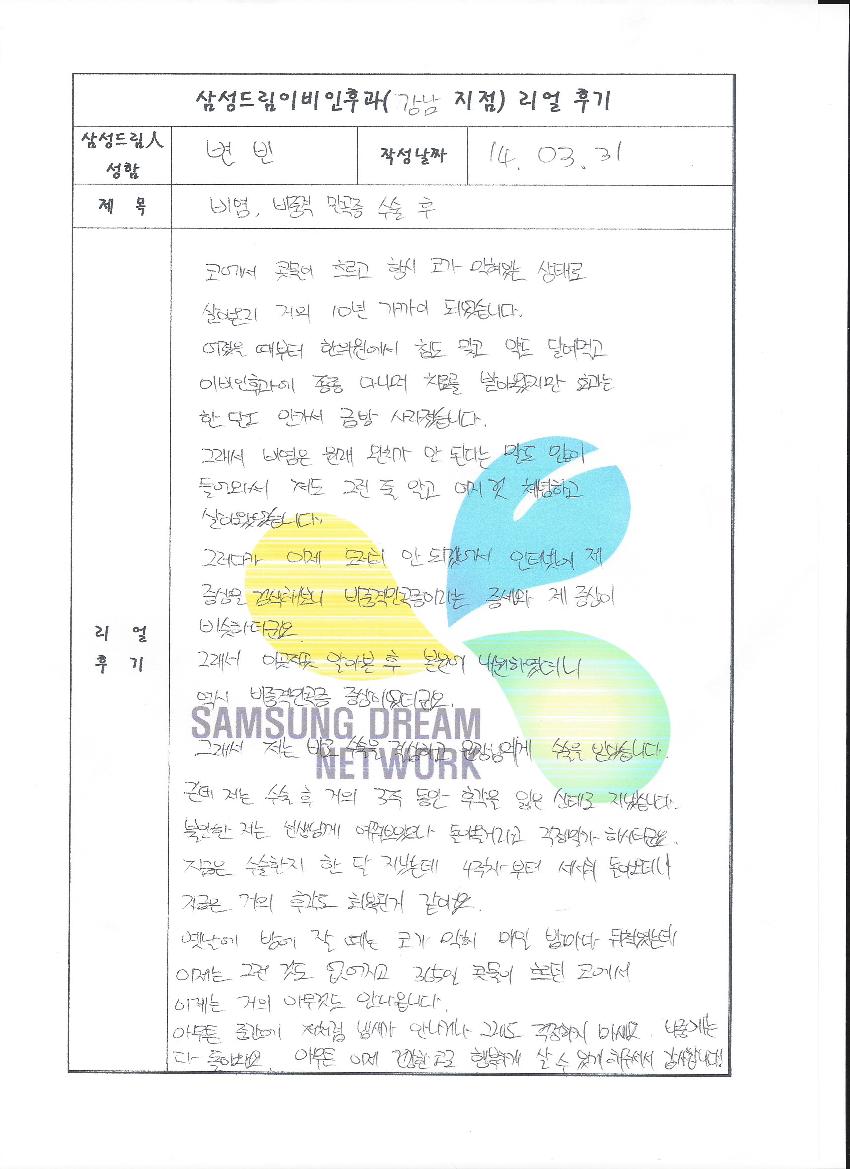 삼성드림이비인후과(강남 지점) 리얼 후기
삼성드림人 성함
변 빈
작성날짜
14. 03. 31
제 목
비염, 비중격 만곡증 수술 후
리 얼 후 기
코에서 콧물이 흐르고 항시 코가 막혀있는 상태로
살아온지 거의 10년 가까이 되었습니다.
어렸을 때부터 한의원에서 침도 맞고 약도 달여먹고
이비인후과에 종종 다니며 치료를 받아왔지만 효과는
한 달도 안가서 금방 사라졌습니다.
그래서 비염은 원래 완치가 안 된다는 말도 많이
들어와서 저도 그런 줄 알고 여지껏 체념하고
살아왔었습니다.
그러다가 이제 도저히 안 되겠어서 인터넷에 제
증상을 검색해보니 비중격만곡증이라는 증세와 제 증상이
비슷하더군요.
그래서 이곳저곳 알아본 후 본원에 내원하였더니
역시 비중격만곡증 증상이였더군요.
SAMSUNG DREAM
NETWORK
그래서 저는 바로 수술을 결심하고 원장님에게 수술을 받았습니다.
근데 저는 수술 후 거의 3주 동안 후각을 잃은 상태로 지냈습니다.
불안한 저는 선생님께 여쭤보았으나 돌아올거라고 걱정말라 하시더군요.
지금은 수술한지 한 달 지났는데 4주차부터 서서히 돌아오더니
지금은 거의 후각도 회복된거 같아요.
옛날에 밤에 잘 때는 코가 막혀 매일 밤마다 뒤척였는데
이제는 그런 것도 없어지고 365일 콧물이 흐르던 코에서
이제는 거의 아무것도 안나옵니다.
아무튼 중간에 저처럼 냄새가 안나거나 그래도 걱정하지 마세요. 나중에는
다 돌아와요. 아무튼 이제 건강한 코로 행복하게 살 수 있게 해주셔서 감사합니다!